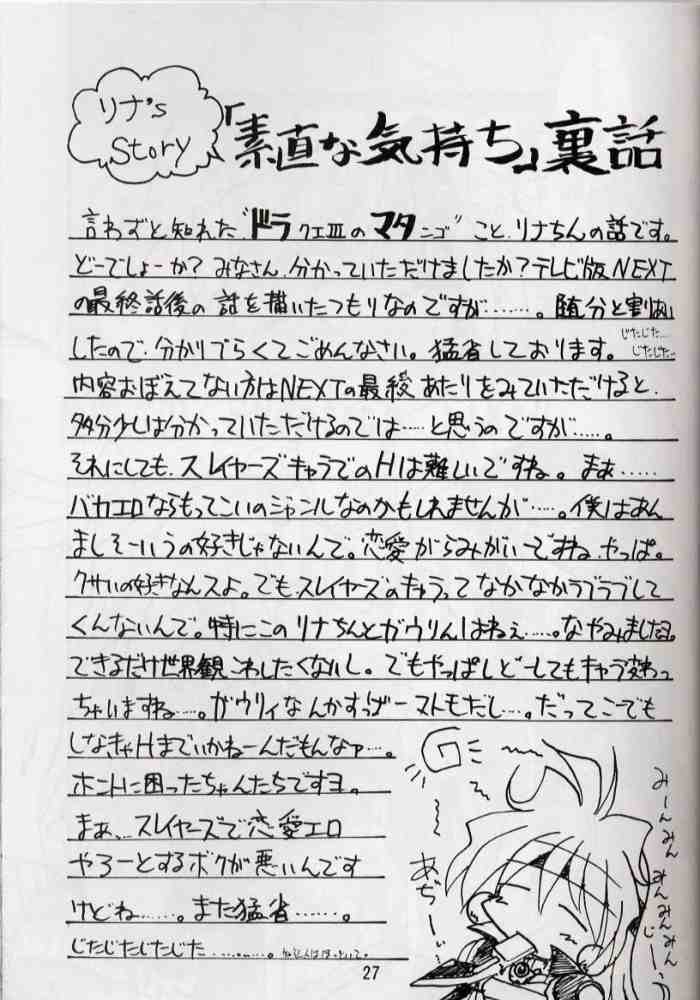 リナ's
Story
「素直な気持ち」裏話
言わずと知れた“ドラクエⅢのマタンゴ”こと、リナちんの話です。
どーでしょーか?みなさん、分かっていただけましたか?テレビ版NEXT
の最終話後の話を描いたつもりなのですが……。随分と割あい
したので、分かりづらくてごめんなさい。猛省しております。
じたじた…
じたじた…
内容おぼえてない方はNEXTの最終あたりをみていただけると、
多分少しは分かっていただけるのでは……と思うのですが……。
それにしても、スレイヤーズキャラでのHは難しいですね。まぁ……
バカエロならもってこいのジャンルなのかもしれませんが……。僕はあん
ましそーいうの好きじゃないんで。恋愛がらみがいーですね、やっぱ。
クサいの好きなんスよ。でもスレイヤーズのキャラってなかなかラブラブして
くんないんで。特にこのリナちんとガウリんはねぇ……。なやみましたョ。
できるだけ世界観こわしたくないし。でもやっぱしどーしてもキャラ変わっ
ちゃいますね……。ガウリィなんかすげーマトモだし…。だってこーでも
しなきゃHまでいかねーんだもんなァ…。
ホントに困ったちゃんたちですヨ。
まぁ、スレイヤーズで恋愛エロ
やろーとするボクが悪いんです
けどね……。また猛省……。
じたじたじたじた………
あぢーーい
みーんみん
みんみんみん
じーー
27